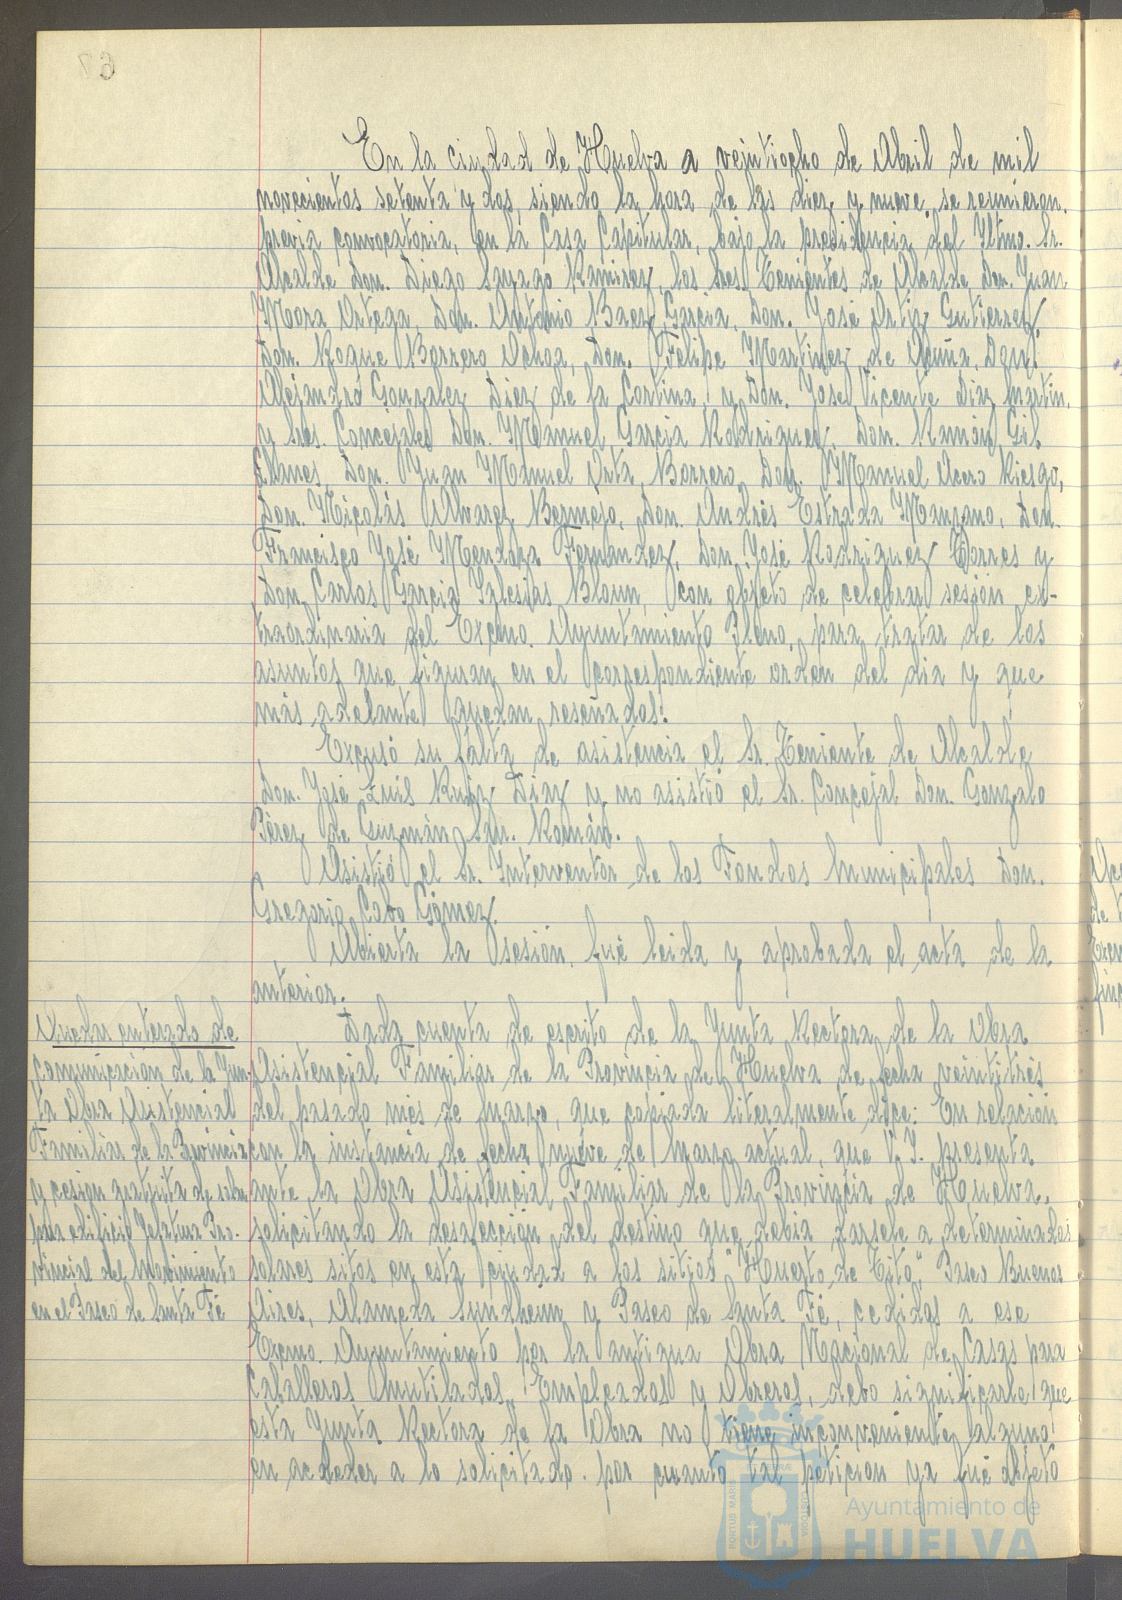 En la ciudad de Huelva a veintiocho de Abril de mil
novecientos setenta y dos, siendo la hora de las diez y nueve, se reunieron,
previa convocatoria, en la Casa Capitular, bajo la presidencia del Iltmo. Sr.
Alcalde Don. Diego Sayago Ramirez, los Sres Tenientes de Alcalde Don. Juan
Mora Ortega, Don. Antonio Baez Garcia, Don. José Ortiz Gutierrez,
Don. Roque Borrero Ochoa, Don. Felipe Martinez de Acuña, Don.
Alejandro Gonzalez Diez de la Cortina, y Don. Jose Vicente Diaz Martin,
y Sres. Concejales Don. Manuel Garcia Rodriguez, Don. Ramón Gil
Don. Juan Manuel Orta Borrero, Don. Manuel Acero Riesgo,
Don. Nicolás Alvarez Bermejo, Don. Andrés Estrada Manzano, Don.
Francisco José Mendoza Fernandez, Don José Rodriguez Torres y
Don Carlos Garcia Iglesias Bloun, con objeto de celebrar sesión ex-
traordinaria del Excmo. Ayuntamiento Pleno, para tratar de los
asuntos que figuran en el correspondiente orden del dia y que
más adelante quedan reseñados.
Excusó su falta de asistencia el Sr. Teniente de Alcalde
Don. José Luis Ruiz Diaz y no asistió el Sr. Concejal Don. Gonzalo
Pérez de Guzmán San. Román.
Asistió el Sr. Interventor de los Fondos Municipales Don.
Gregorio Cabo Gómez.
Abierta la sesión, fué leida y aprobada el acta de la
anterior.
Quedar enterado de
comunicación de la Jun-
ta Obra Asistencial
Familiar de la Provincia
y cesion gratuita de
para edificio Jefatura Pro-
vincial del Movimiento
en el Paseo de Santa Fé
Dada cuenta de escrito de la Junta Rectora de la Obra
Asistencial Familiar de la Provincia de Huelva de fecha veintitrés
del pasado mes de Marzo, que copiada literalmente dice: En relación
con la instancia de fecha nueve de Marzo actual, que V.I. presenta
ante la Obra Asistencial Familiar de la Provincia de Huelva,
solicitando la desafección del destino que debia darsele a determinados
solares sitos en esta ciudad a los sitios "Huerto de Tito," Paseo Buenos
Aires, Alameda Sundheim y Paseo de Santa Fé, cedidos a ese
Excmo. Ayuntamiento por la antigua Obra Nacional de Casas para
Caballeros Mutilados, Empleados y Obreros, debo significarle que
esta Junta Rectora de la Obra no tiene inconveniente alguno
en acceder a lo solicitado. por cuanto tal peticion ya fué objeto
PORTUS MARIS
CUSTODIA
Ayuntamiento de
HUELVA